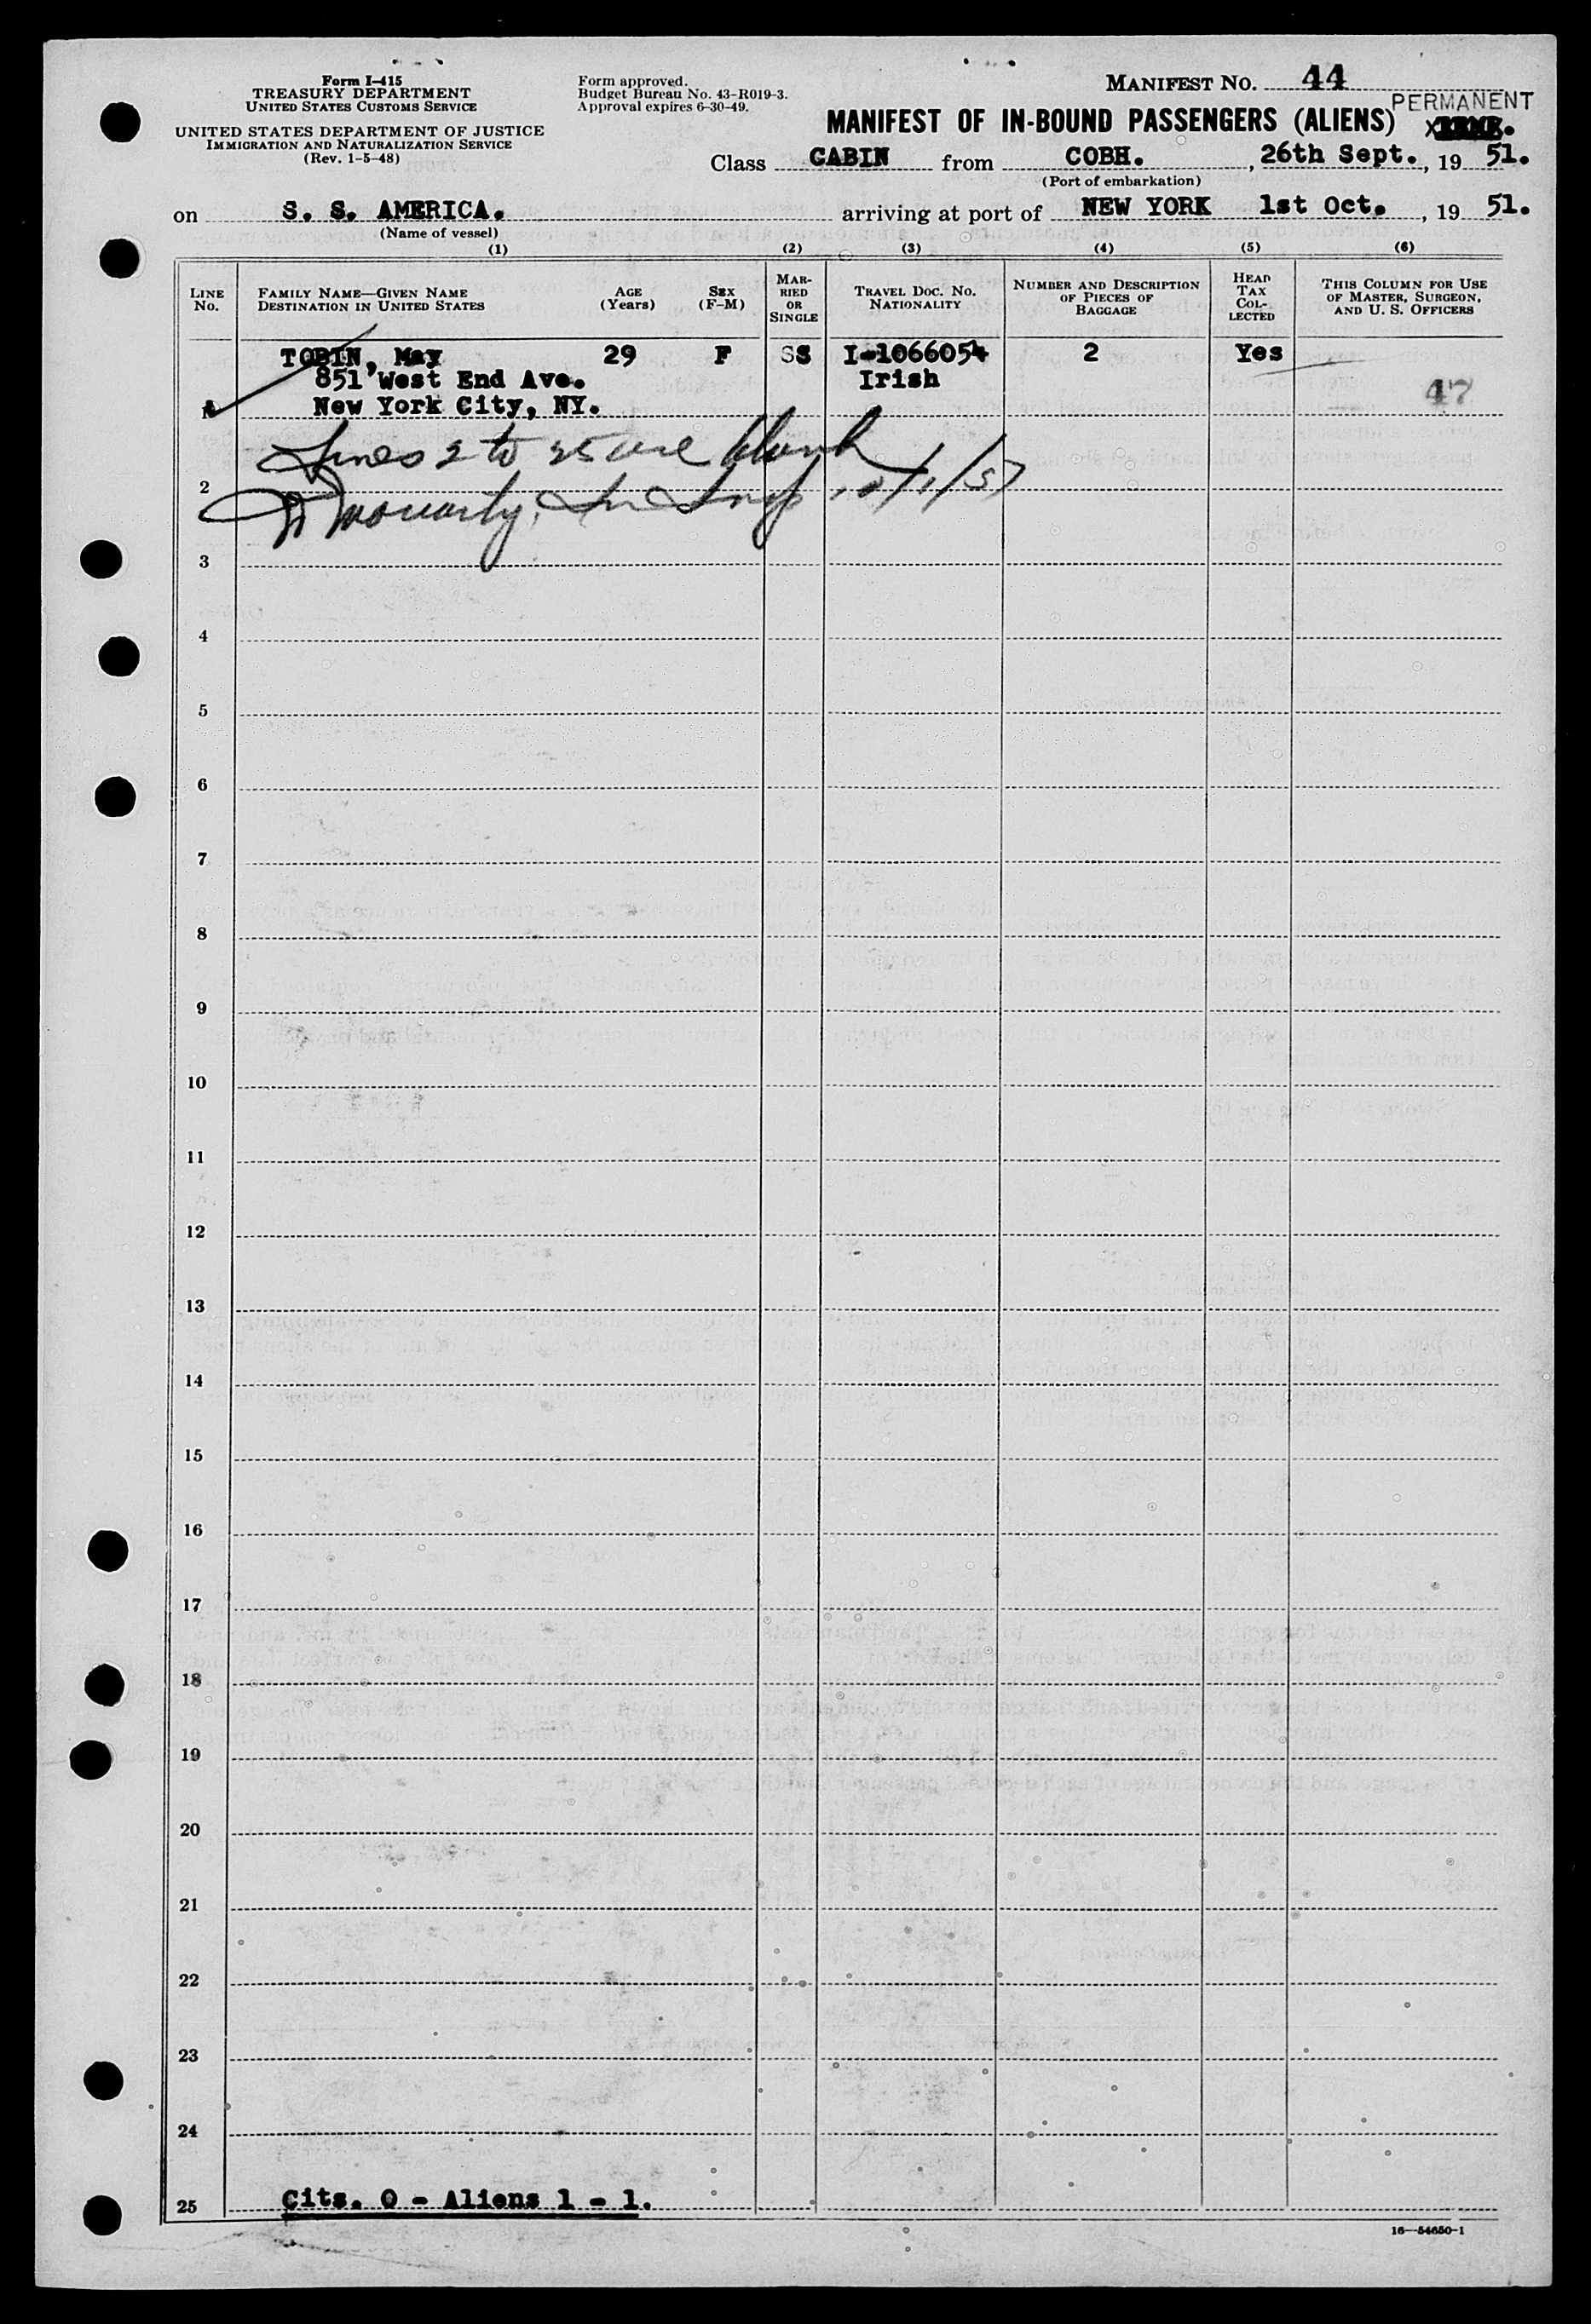 Form I-415
TREASURY DEPARTMENT
UNITED STATES CUSTOMS SERVICE
UNITED STATES DEPARTMENT OF JUSTICE
IMMIGRATION AND NATURALIZATION SERVICE
(Rev. 1-5-48)
Form approved.
Budget Bureau No. 43-R019-3.
Approval expires 6-30-49.
MANIFEST NO. 44
PERMANENT
MANIFEST OF IN-BOUND PASSENGERS (ALIENS)
Class CABIN from COBH. , 26th Sept. , 19 51.
(Port of embarkation)
on S. S. AMERICA. arriving at port of NEW YORK 1st Oct. , 19 51.
(Name of vessel)
(1) (2) (3) (4) (5) (6)
LINE No.
FAMILY NAME—GIVEN NAME
DESTINATION IN UNITED STATES
AGE (Years)
SEX (F-M)
MARRIED OR SINGLE
TRAVEL DOC. NO.
NATIONALITY
NUMBER AND DESCRIPTION OF PIECES OF BAGGAGE
HEAD TAX COLLECTED
THIS COLUMN FOR USE OF MASTER, SURGEON, AND U. S. OFFICERS
TOBIN, May 29 F SS I-1066054 2 Yes
851 West End Ave. Irish
New York City, NY. 47
Lines 2 to 25 are blank
2
Moriarty, Im Insp 10/1/51
3
4
5
6
7
8
9
10
11
12
13
14
15
16
17
18
19
20
21
22
23
24
25 Cits. 0 - Aliens 1 - 1.
16—54650-1